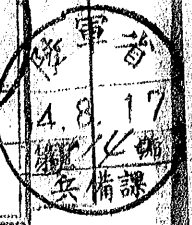 陸軍省
4.8.17
14
兵備課